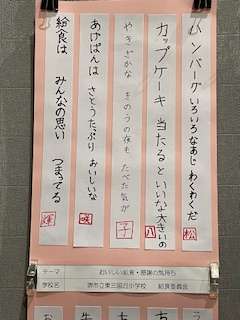 ハンバーグ いろいろなあじ わくわくだ
松
カップケーキ 当たるといいな 大きいの
八
やきざかな きのうの夜も たべた気が
子
あげぱんは さとうたっぷり おいしいな
咲
給食は みんなの思い つまってる
輝
テーマ おいしい給食・感謝の気持ち
学校名 堺市立東三国丘小学校 給食委員会